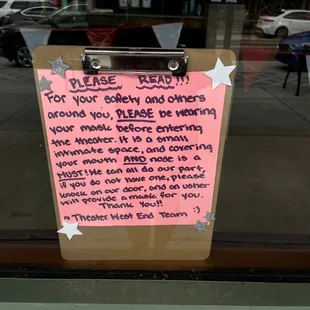 PLEASE READ!!!
For your safety and others
around you, PLEASE be wearing
your mask before entering
the theater. It is a small
intimate space, and covering
your mouth AND nose is a
MUST! We can all do our part,
if you do not have one, please
knock on our door, and an usher
will provide a mask for you.
Thank You!!
~ Theater West End Team :)